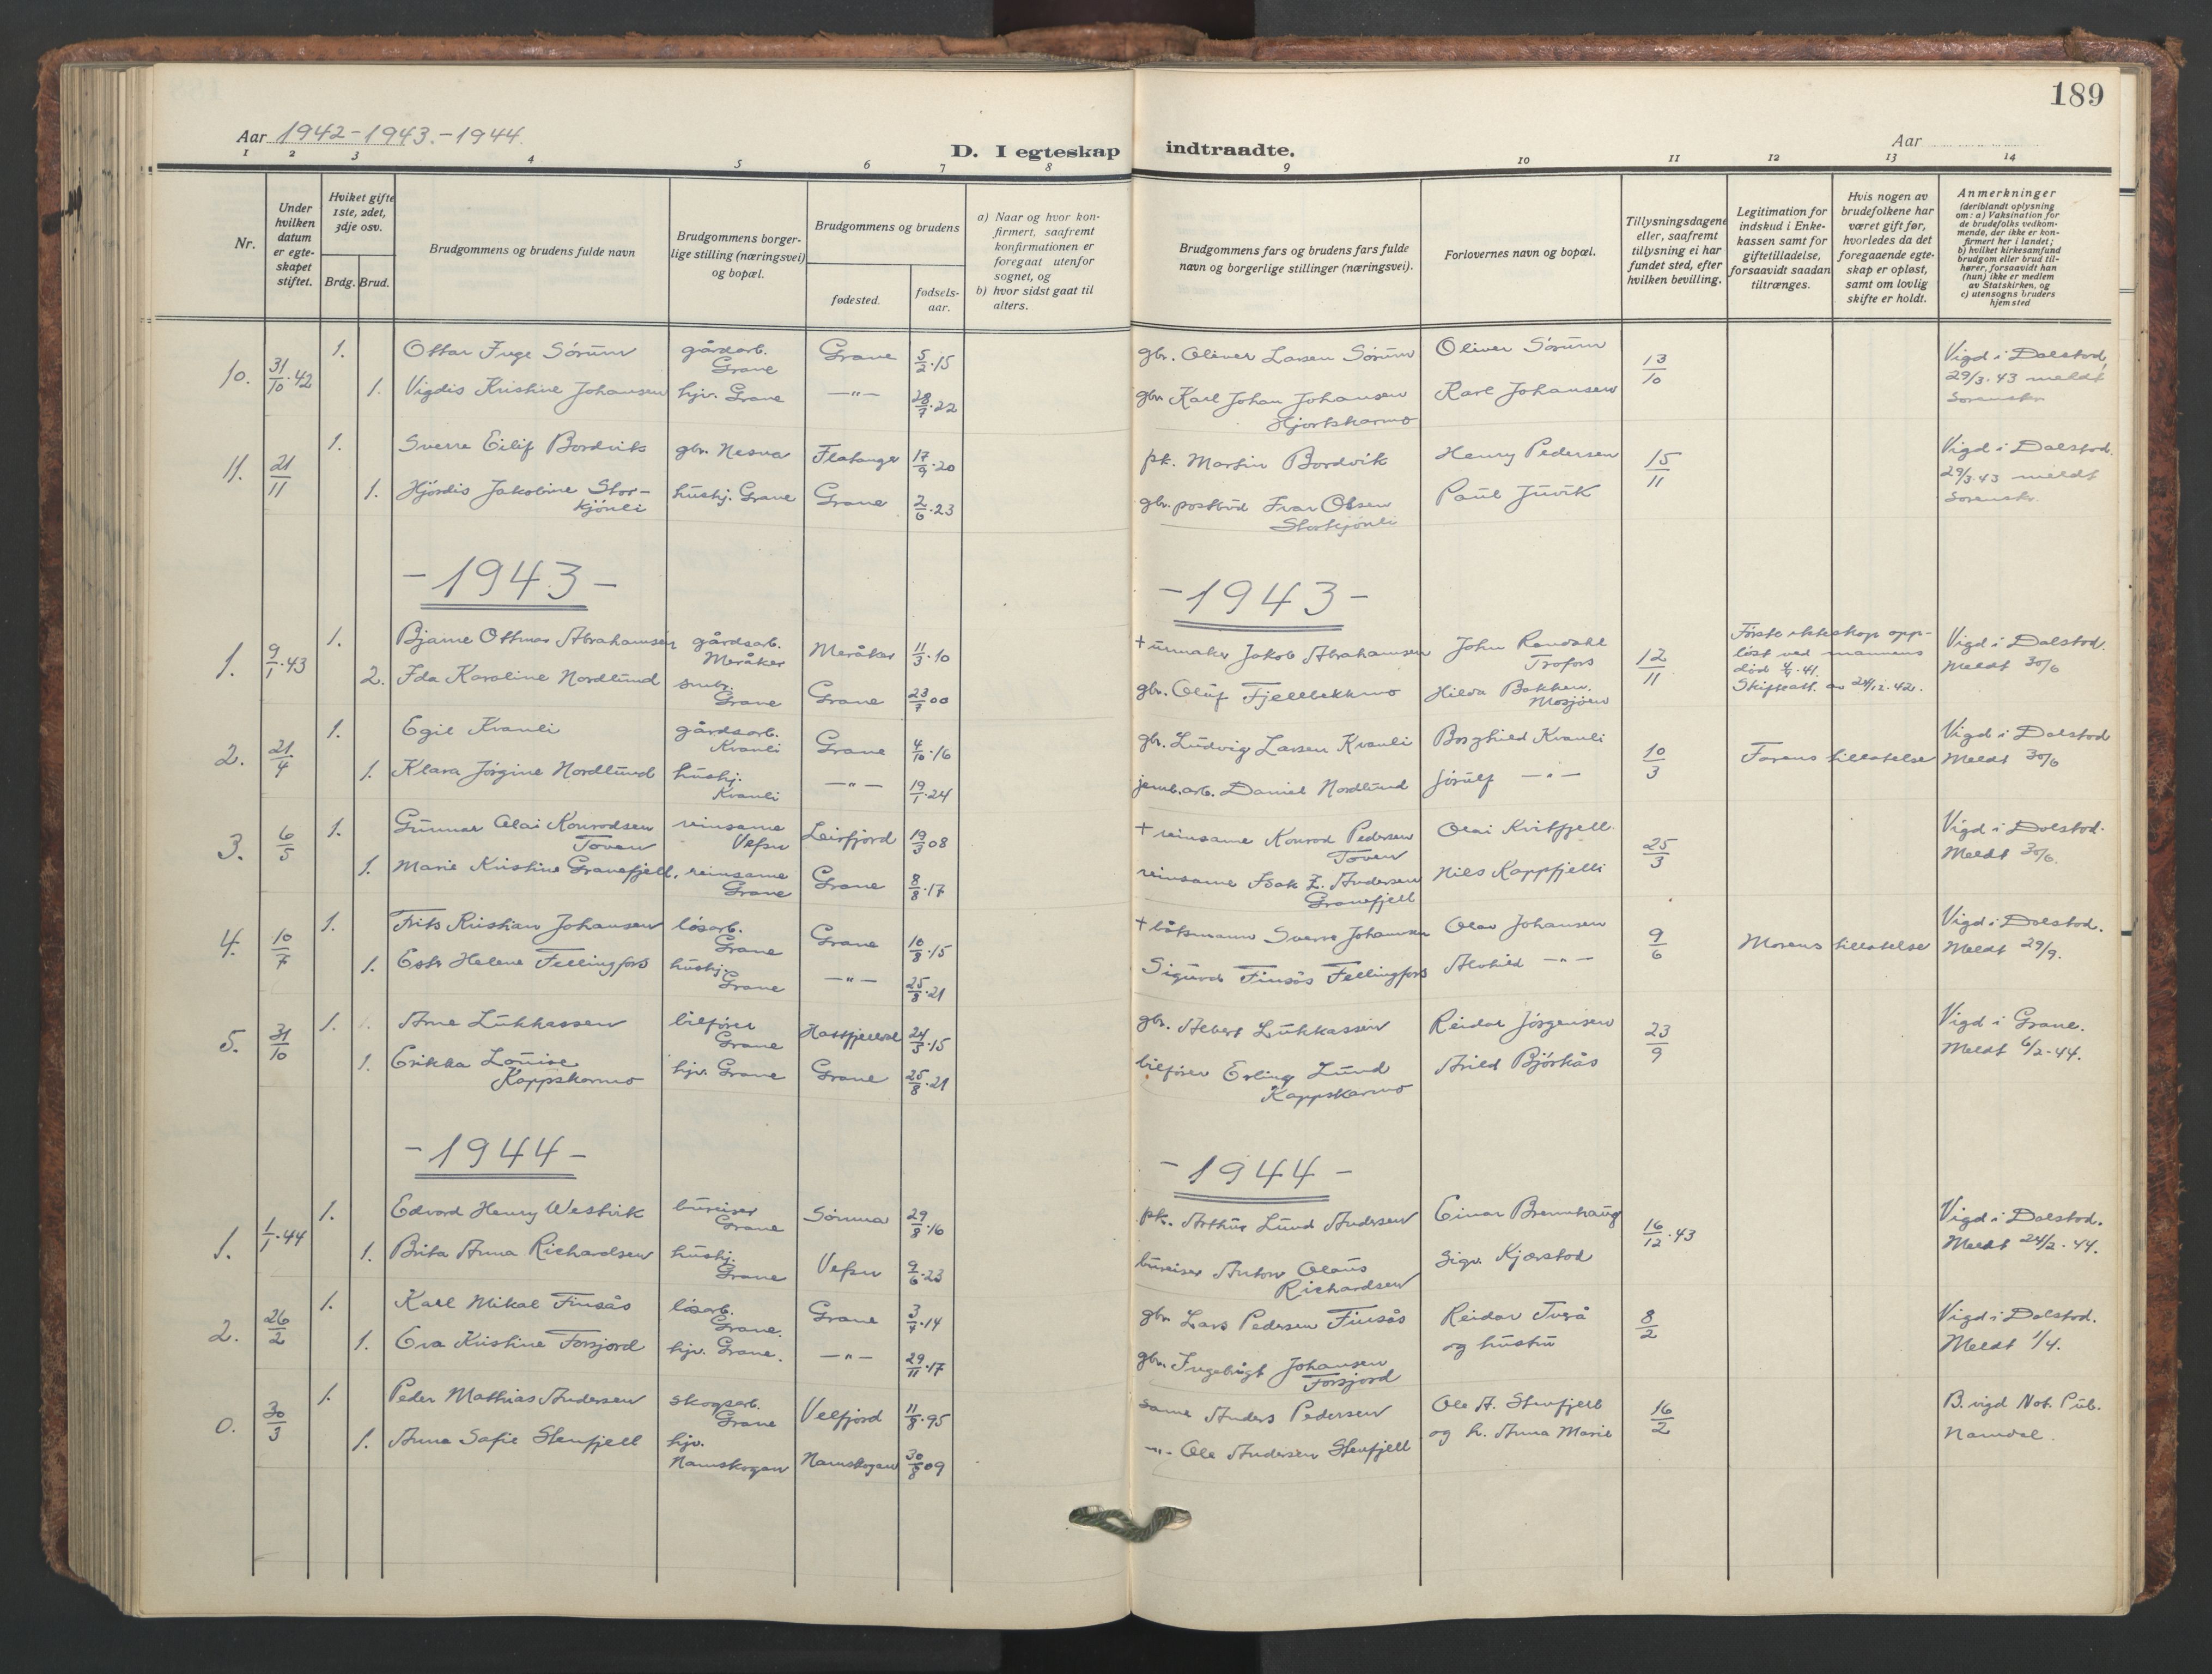 189
Aar 1942-1943.-1944.
D. I egteskap indtraadte.
Aar
1 2 3 4 5 6 7 8 9 10 11 12 13 14
Nr.
Under hvilken datum er egteskapet stiftet.
Hviket gifte 1ste, 2det, 3dje osv.
Brdg. Brud.
Brudgommens og brudens fulde navn
Brudgommens borgerlige stilling (næringsvei) og bopæl.
Brudgommens og brudens
fødested.
fødselsaar.
a) Naar og hvor konfirmert, saafremt konfirmationen er foregaat utenfor sognet, og
b) hvor sidst gaat til alters.
Brudgommens fars og brudens fars fulde navn og borgerlige stillinger (næringsvei).
Forlovernes navn og bopæl.
Tillysningsdagene eller, saafremt tillysning ei har fundet sted, efter hvilken bevilling.
Legitimation for indskud i Enkekassen samt for giftetilladelse, forsaavidt saadan tiltrænges.
Hvis nogen av brudefolkene har været gift før, hvorledes da det foregaaende egteskap er opløst, samt om lovlig skifte er holdt.
Anmerkninger (deriblandt oplysning om: a) Vaksination for de brudefolks vedkommende, der ikke er konfirmert her i landet; b) hvilket kirkesamfund brudgom eller brud tilhører, forsaavidt han (hun) ikke er medlem av Statskirken, og c) utensogns bruders hjemsted
10. 31/10.42 1. Ottar Inge Sörum gårdarb. Grane Grane 5/2.15 gbr. Oliver Larsen Sörum Oliver Sörum 13/10 Vigd i Dolstad,
1. Vigdis Kristine Johansen hjv. Grane —"— 28/7.22 gbr. Karl Johan Johansen Hjortskarmo Karl Johansen 29/3.43 meldt Sorenskr.
11. 21/11 1. Sverre Eilif Bordvik gbr. Nesna Flatanger 17/9.20 pk. Martin Bordvik Henry Pedersen 15/11 Vigd i Dolstad.
1. Hjördis Jakobine Storkjönli hushj. Grane Grane 2/6.23 gbr. postbud Ivar Olsen Storkjönli Paul Juvik 29/3.43 meldt Sorenskr.
-1943- -1943-
1. 9/1.43 1. Bjarne Ottmar Abrahamsen gårdsarb. Meråker Meråker 11/3.10 + urmaker Jakob Abrahamsen John Randahl Trofors 12/11 Første ekteskap oppløst ved mannens död 4/4.41. Skifteatt. av 24/12.42. Vigd i Dolstad.
2. Ida Karoline Nordlund smbr. Grane Grane 23/7 00 gbr. Oluf Fjellbekkmo Hilda Bakken. Mosjöen Meldt 30/6
2. 21/4 1. Egil Kvanli gårdsarb. Kvanli Grane 4/10.16 gbr. Ludvig Larsen Kvanli Borghild Kvanli 10/3 Farens tillatelse Vigd i Dolstad
1. Klara Jörgine Nordlund hushj. Kvanli —"— 19/1.24 jernb.arb. Daniel Nordlund Jörulf —"— Meldt 30/6
3. 6/5 1. Gunnar Olai Konradsen Toven reinsame Vefsn Leirfjord 19/3 08 + reinsame Konrad Pedersen Toven Olai Kvitfjell 25/3 Vigd i Dolstad.
1. Marie Kristine Granefjell, reinsame Grane Grane 8/8.17 reinsame Isak Z. Andersen Granefjell Nils Kappfjelli Meldt 30/6.
4. 10/7 1. Frits Kristian Johansen lösarb. Grane Grane 10/8.15 + båtsmann Sverre Johansen Olav Johansen 9/6 Morens tillatelse Vigd i Dolstad.
1. Ester Helene Fellingfors hushj. Grane —"— 25/3.21 Sigurd Finsås Fellingfors Alvhild —"— Meldt 29/9.
5. 31/10 1. Arne Lukkassen bilförer Grane Hattfjelldal 24/3.15 gbr. Albert Lukkassen Reidar Jörgensen 23/9 Vigd i Grane.
1. Erikka Louise Kappskarmo hjv. Grane Grane 25/8.21 bilförer Erling Lund Kappskarmo Arild Björkås Meldt 6/2-44.
-1944- -1944-
1. 1/1.44 1. Edvard Henry Westvik bureiser Grane Sömna 29/8.16 pk. Arthur Lund Andersen Einar Brennhaug 16/12.43 Vigd i Dolstad.
1. Brita Anna Richardsen hushj. Grane Vefsn 9/6.23 bureiser Anton Olaus Richardsen Sigv. Kjærstad Meldt 24/2.44.
2. 26/2 1. Karl Mikal Finsås lösarb. Grane. Grane 3/4.14 gbr Lars Pedersen Finsås Reidar Tverå 8/2 Vigd i Dolstad.
1. Eva Kristine Forsjord hjv. Grane. —"— 29/11.17 gbr. Ingebrigt Johansen Forsjord og hustru Meldt 1/4.
0. 30/3 1. Peder Mathias Andersen skogsarb. Grane Velfjord 11/8.95 same Anders Pedersen Ole A. Stenfjell 16/2 B. vigd Not. Pub.
1. Anna Sofie Stenfjell hjv. Namskogan Namskogan 30/8 09 —"— Ole Andersen Stenfjell og h. Anna Marie Namdal.